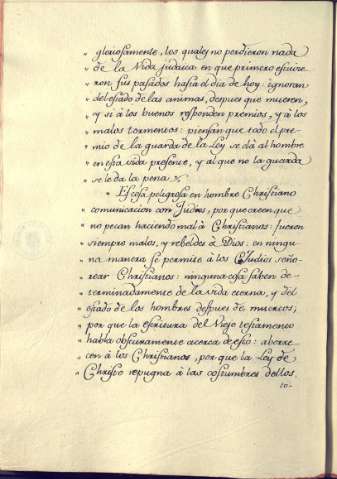 " gloriosamente, los quales no perdieron nada
" de la Vida judaica en que primero estuvie-
" ron sus pasados hasta el dia de hoy: ignoran
" del estado de las animas, despues que mueren,
" y si á los buenos responden premios, y á los
" malos tormentos: piensan que todo el pre-
" mio de la guarda de la Ley se dá al hombre
" en esta vida presente, y al que no la guarda
" se le da la pena
" Es cosa peligrosa en hombre Christiano
" comunicacion con Judios, por que creen que
" no pecan haciendo mal á Christianos: fueron
" siempre malos, y rebeldes à Dios: en ningu-
" na manera se permite à los Judios seño-
" rear Christianos: ninguna cosa saben de-
" terminadamente de la vida eterna, y del
" estado de los hombres despues de muertos;
" por que la escritura del Viejo testamento
" habla obscuramente acerca de esto: aborre-
" cen á los Christianos, por que la Ley de
" Christo repugna á las costumbres dellos.